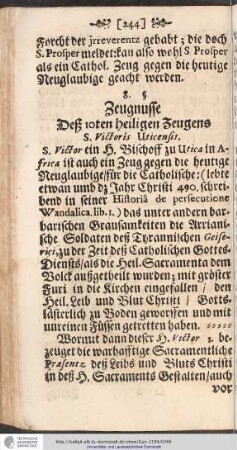 [244]
Forcht der jrreverentz gehabt; die doch
S. Prosper meldet: kan also wohl S Prosper
als ein Cathol. Zeug gegen die heutige
Neuglaubige geacht werden.
8. §
Zeugnusse
Deß 10ten heiligen Zeugens
S. Victoris Uticensis.
S. Victor ein H. Bischoff zu Utica in A-
frica ist auch ein Zeug gegen die heutige
Neuglaubige/für die Catholische: (lebte
etwan umb dz Jahr Christi 490. schrei-
bend in seiner Historiâ de persecutione
Wandalica. lib. 1.) das unter andern bar-
barischen Grausamkeiten die Arriani-
sche Soldaten deß Tyrannischen Geise-
rici, zu der Zeit deß Catholischen Gottes-
Diensts/als die Heil. Sacramenta dem
Volck außgetheilt wurden; mit gröster
Furi in die Kirchen eingefallen/ den
Heil. Leib und Blut Christi/ Gotts-
lästerlich zu Boden geworffen und mit
unreinen Füssen getretten haben.
Wormit dann dieser H. Victor 1. be-
zeuget die warhafftige Sacramentliche
Præsentz deß Leibs und Bluts Christi
in deß H. Sacraments Gestalten/auch
vor